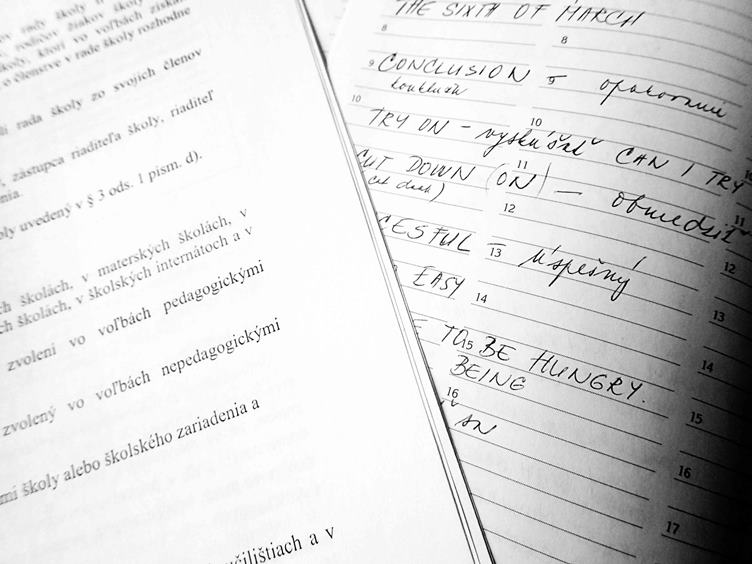 rady školy
rodičov žiakov školy
školy, ktorí vo voľbách získali
o členstve v rade školy rozhodne
rada školy zo svojich členov
zástupca riaditeľa školy, riaditeľ
uvedený v § 3 ods. 1 písm. d).
školách, v materských školách, v
školách, v školských internátoch a v
zvolení vo voľbách pedagogickými
zvolený vo voľbách nepedagogickými
školy alebo školského zariadenia a
a v
THE SIXTH OF MARCH
8 8
9 CONCLUSION = 9
10 10
TRY ON - vyskúšať CAN I TRY
11 11
CUT DOWN (ON) — obmedziť
12 12
CESFUL = úspešný
13 13
EASY
14 14
TO BE HUNGRY.
15 15
BEING
16 16
AN
17